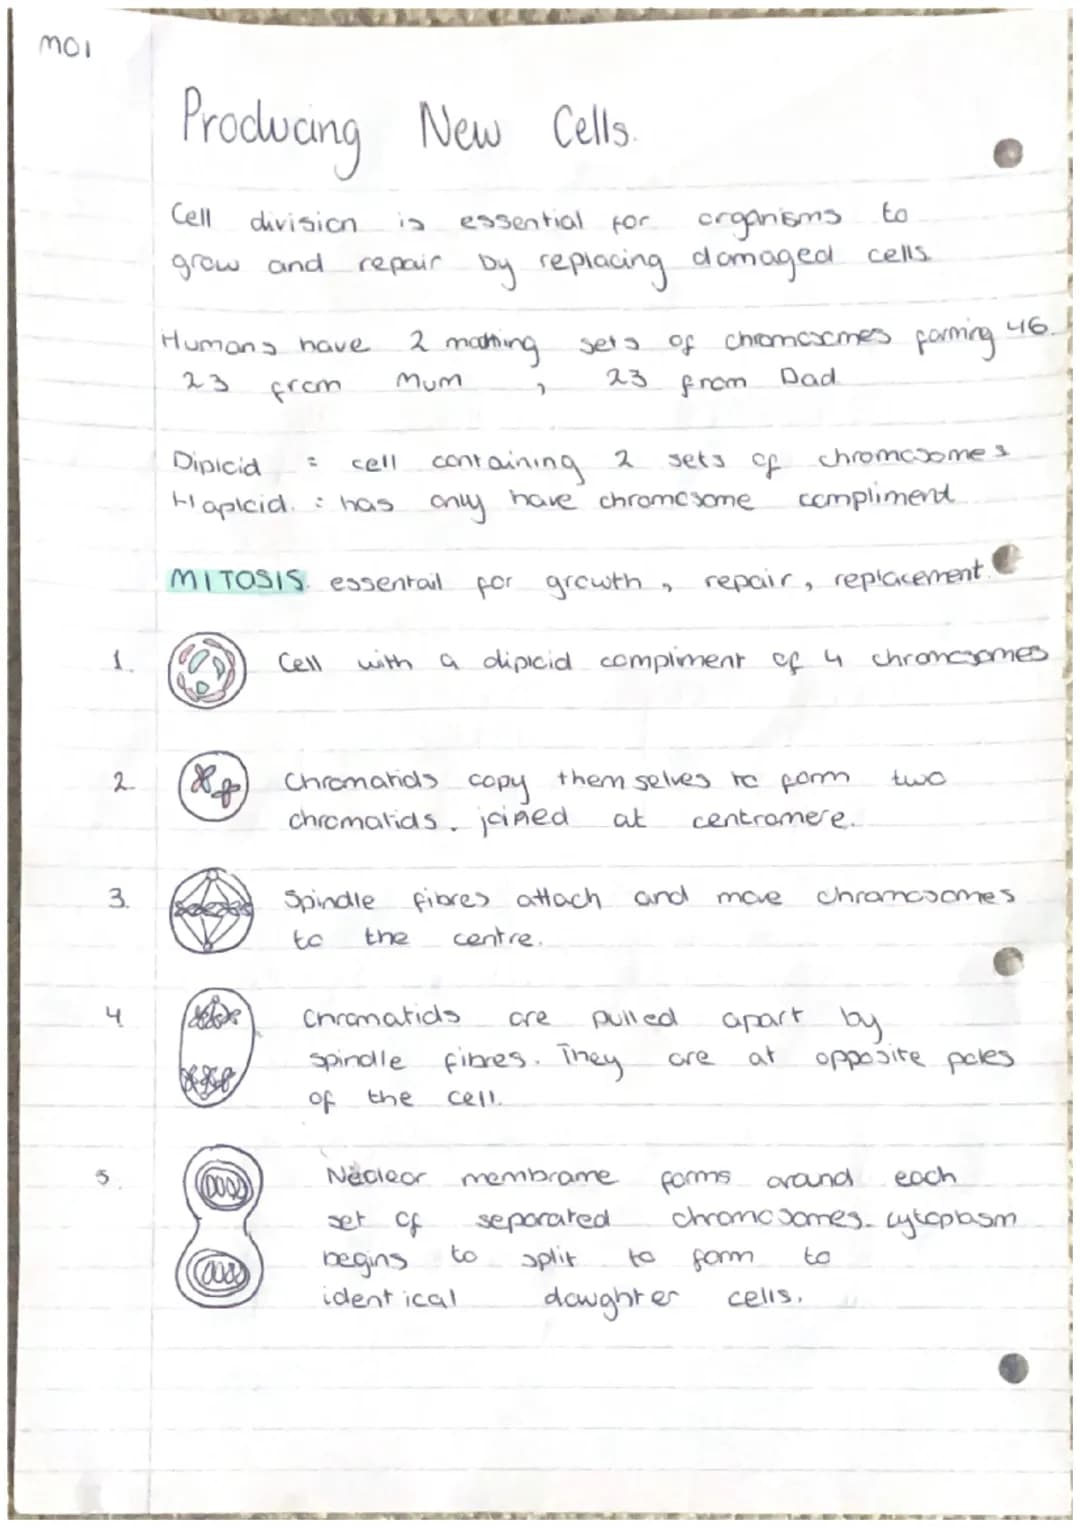 MO1
Producing New Cells.
Cell division is essential for organisms to
grow and repair by replacing damaged cells.
Humans have 2 mathing sets of chromosomes forming 46.
23 from Mum , 23 from Dad
Diploid = cell containing 2 sets of chromosomes
Haploid. = has only have chromosome compliment
MITOSIS. essentail for growth, repair, replacement.
1. Cell with a diploid compliment of 4 chromosomes
2. Chromatids copy themselves to form two
chromatids. joined at centromere.
3. Spindle fibres attach and move chromosomes
to the centre.
4 Chromatids are pulled apart by
spindle fibres. They are at opposite poles
of the cell.
5. Neclear membrame forms around each
set of separated chromosomes. cytoplasm
begins to split to form to
identical daughter cells.